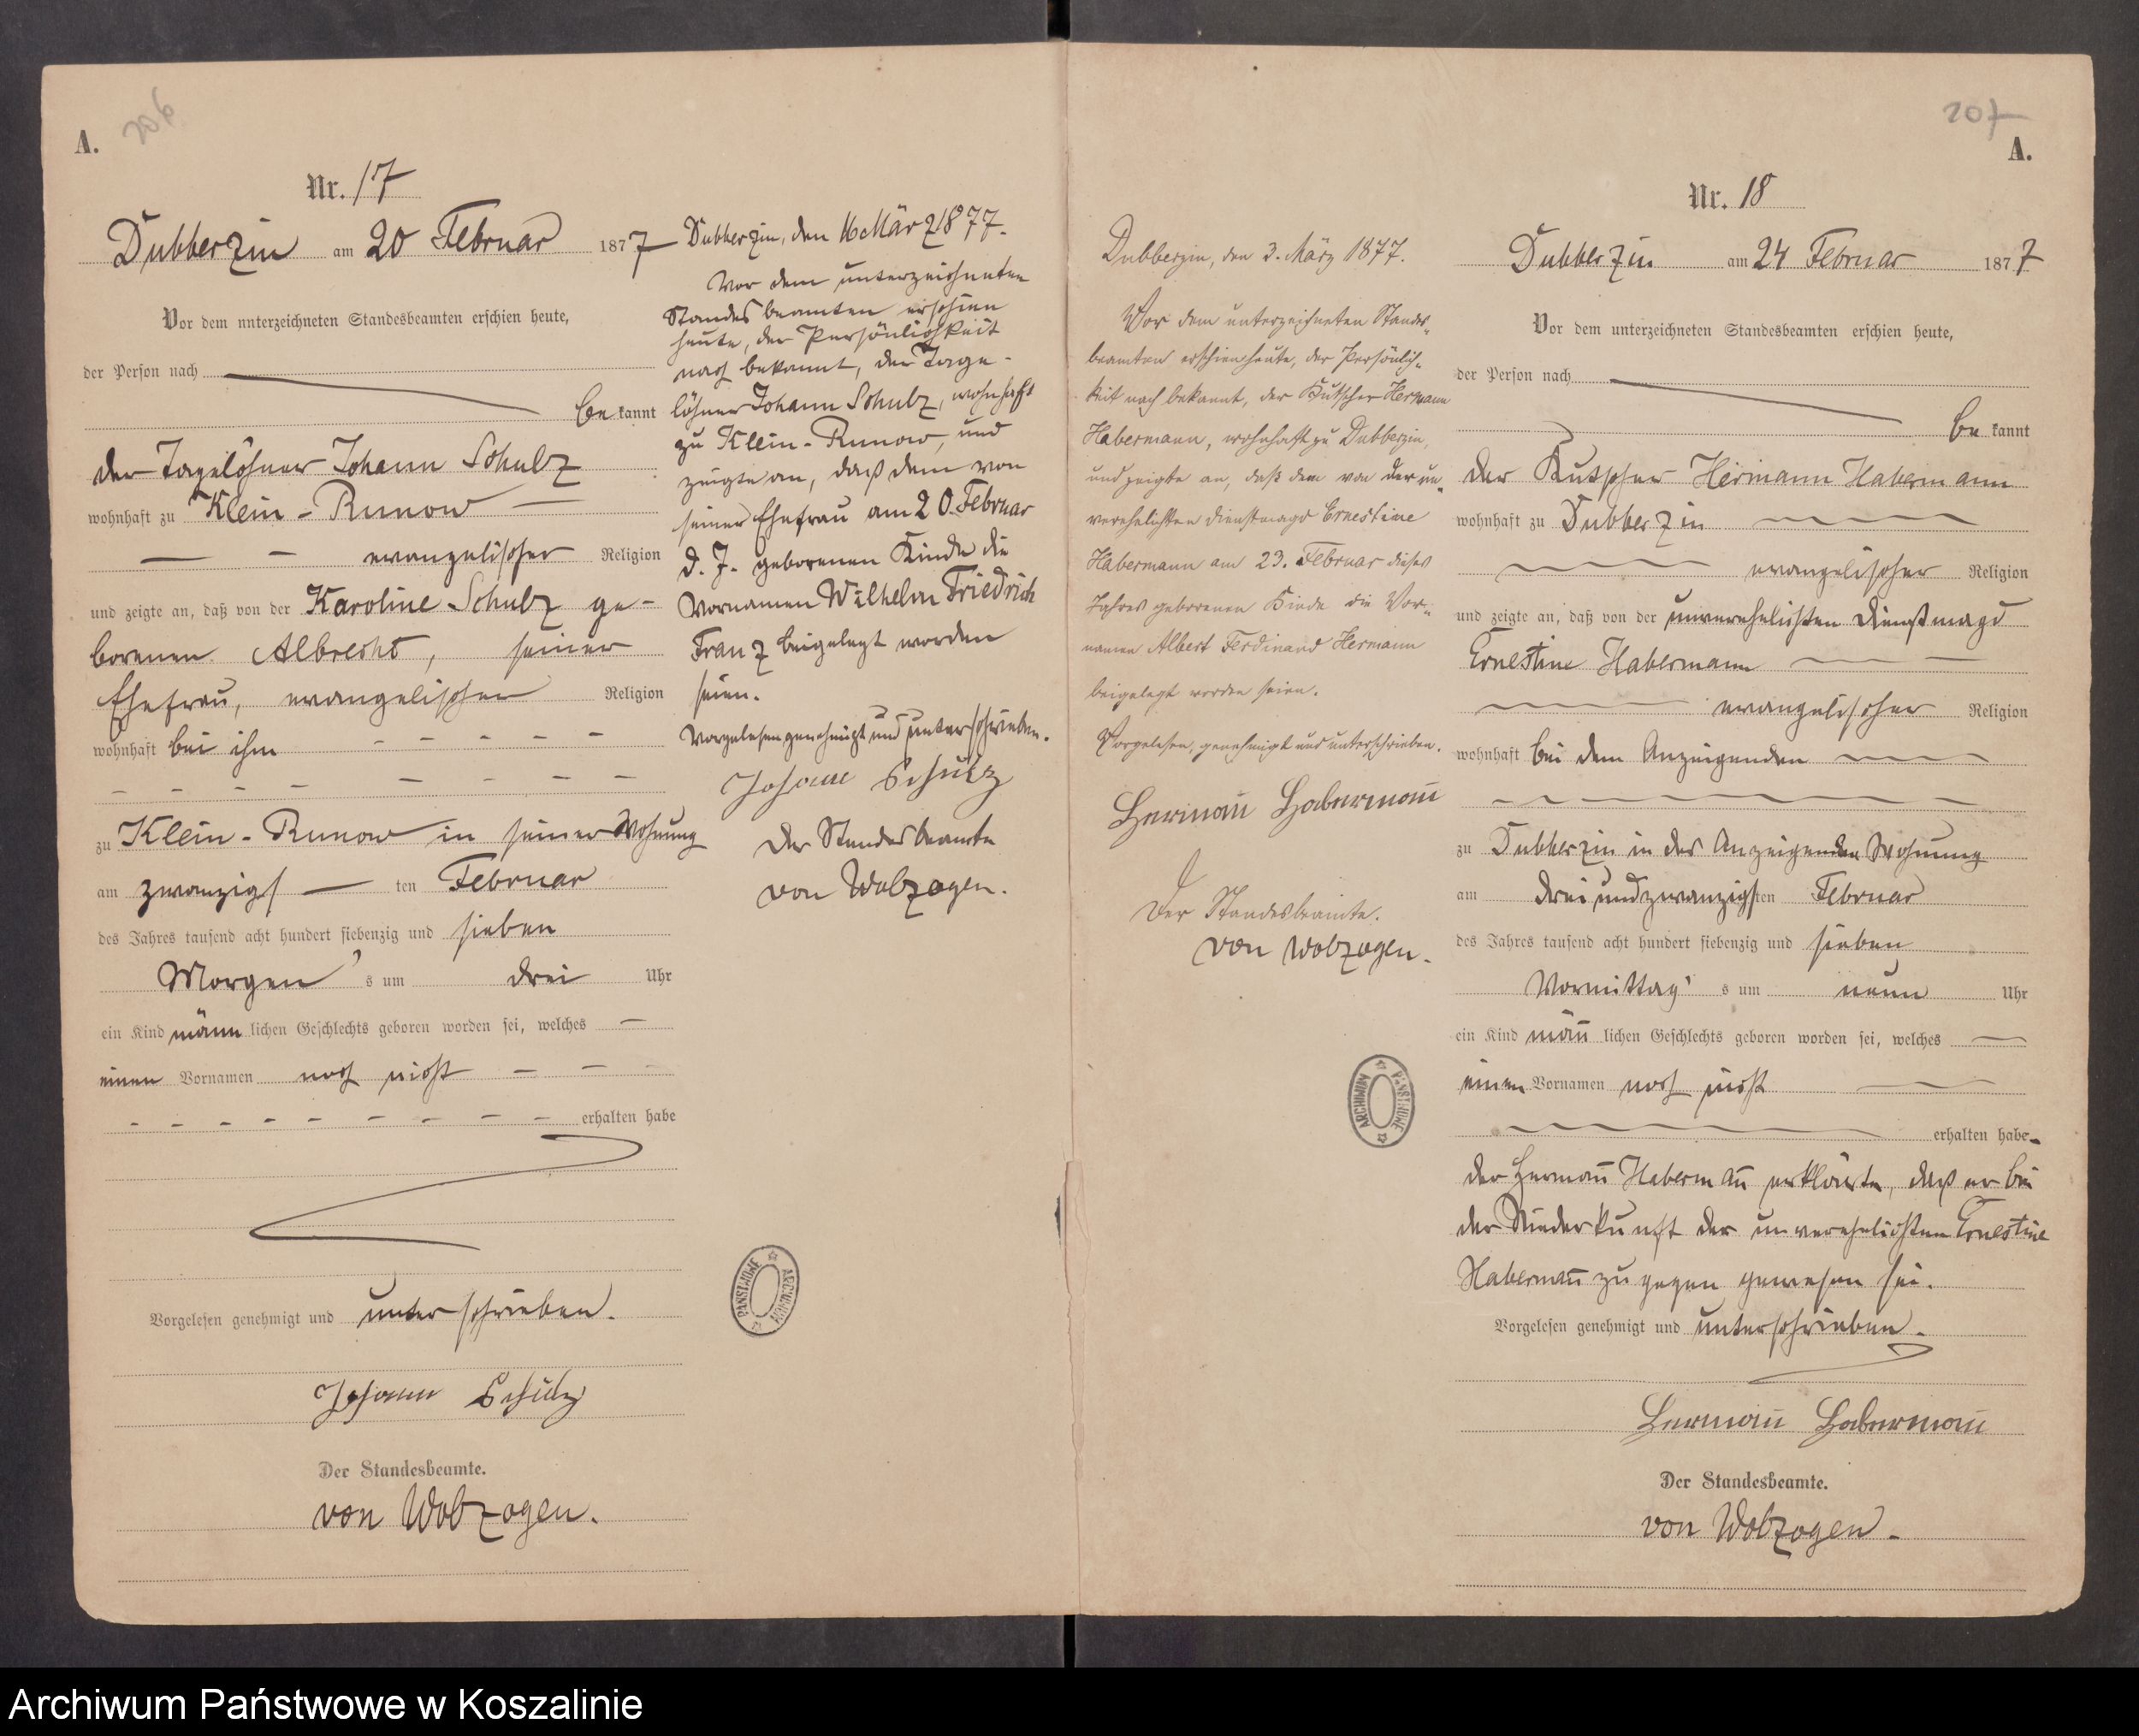 206
A.
Nr. 17
Dubberzin am 20 Februar 1877
Vor dem unterzeichneten Standesbeamten erschien heute,
der Person nach
be kannt
der Tagelöhner Johann Schulz
wohnhaft zu Klein-Runow
evangelischer Religion
und zeigte an, daß von der Karoline Schulz ge-
borenen Albrecht, seiner
Ehefrau, evangelischer Religion
wohnhaft bei ihm
zu Klein-Runow in seiner Wohnung
am zwanzigs ten Februar
des Jahres tausend acht hundert siebenzig und sieben
Morgen's um drei Uhr
ein Kind männ lichen Geschlechts geboren worden sei, welches
einen Vornamen noch nicht
erhalten habe
Vorgelesen genehmigt und unterschrieben.
Johann Schulz
Der Standesbeamte.
von Wolzogen.
Dubberzin, den 16 März 1877.
Vor dem unterzeichneten
Standesbeamten erschien
heute, der Persönlichkeit
nach bekannt, der Tage-
löhner Johann Schulz, wohnhaft
zu Klein-Runow, und
zeigte an, daß dem von
seiner Ehefrau am 20. Februar
d. J. geborenen Kinde die
Vornamen Wilhelm Friedrich
Franz beigelegt worden
seien.
Vorgelesen genehmigt und unterschrieben.
Johann Schulz
Der Standesbeamte
von Wolzogen.
PAŃSTWOWE ARCHIWUM
Dubberzin, den 3. März 1877.
Vor dem unterzeichneten Standes-
beamten erschien heute, der Persönlich-
keit nach bekannt, der Kutscher Hermann
Habermann, wohnhaft zu Dubberzin,
und zeigte an, daß dem von der un-
verehelichten Dienstmagd Ernestine
Habermann am 23. Februar dieses
Jahres geborenen Kinde die Vor-
namen Albert Ferdinand Hermann
beigelegt worden seien.
Vorgelesen, genehmigt und unterschrieben.
Hermañ Habermañ
Der Standesbeamte.
von Wolzogen.
ARCHIWUM PAŃSTWOWE
207
A.
Nr. 18
Dubberzin am 24 Februar 1877
Vor dem unterzeichneten Standesbeamten erschien heute,
der Person nach
be kannt
der Kutscher Hermann Habermann
wohnhaft zu Dubberzin
evangelischer Religion
und zeigte an, daß von der unverehelichten Dienstmagd
Ernestine Habermann
evangelischer Religion
wohnhaft bei dem Anzeigenden
zu Dubberzin in des Anzeigenden Wohnung
am dreiundzwanzigsten Februar
des Jahres tausend acht hundert siebenzig und sieben
Vormittag's um neun Uhr
ein Kind mäñ lichen Geschlechts geboren worden sei, welches
einen Vornamen noch nicht
erhalten habe
der Hermañ Habermañ erklärte, daß er bei
der Niederkunft der unverehelichten Ernestine
Habermañ zugegen gewesen sei.
Vorgelesen genehmigt und unterschrieben.
Hermañ Habermañ
Der Standesbeamte.
von Wolzogen.
Archiwum Państwowe w Koszalinie